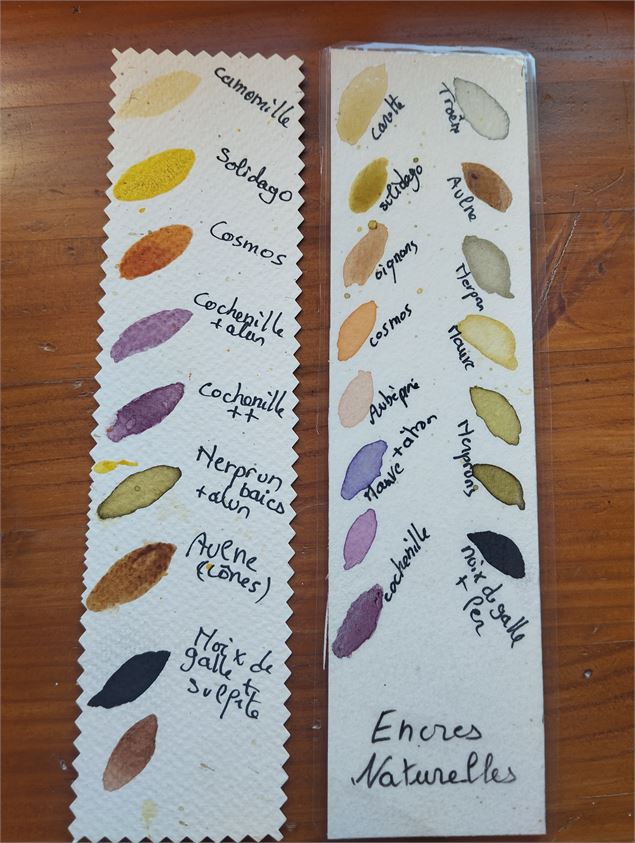 camomille
Solidago
Cosmos
Cochenille
+ alun
Cochenille
++
Nerprun
baies
+ alun
Aulne
(cônes)
Noix de
galle +
sulfite
carotte
solidago
oignons
cosmos
Aubépine
Mauve + citron
cochenille
Troène
Aulne
Nerprun
Mauve
Nerpruns
noix de galle
+ fer
Encres
Naturelles